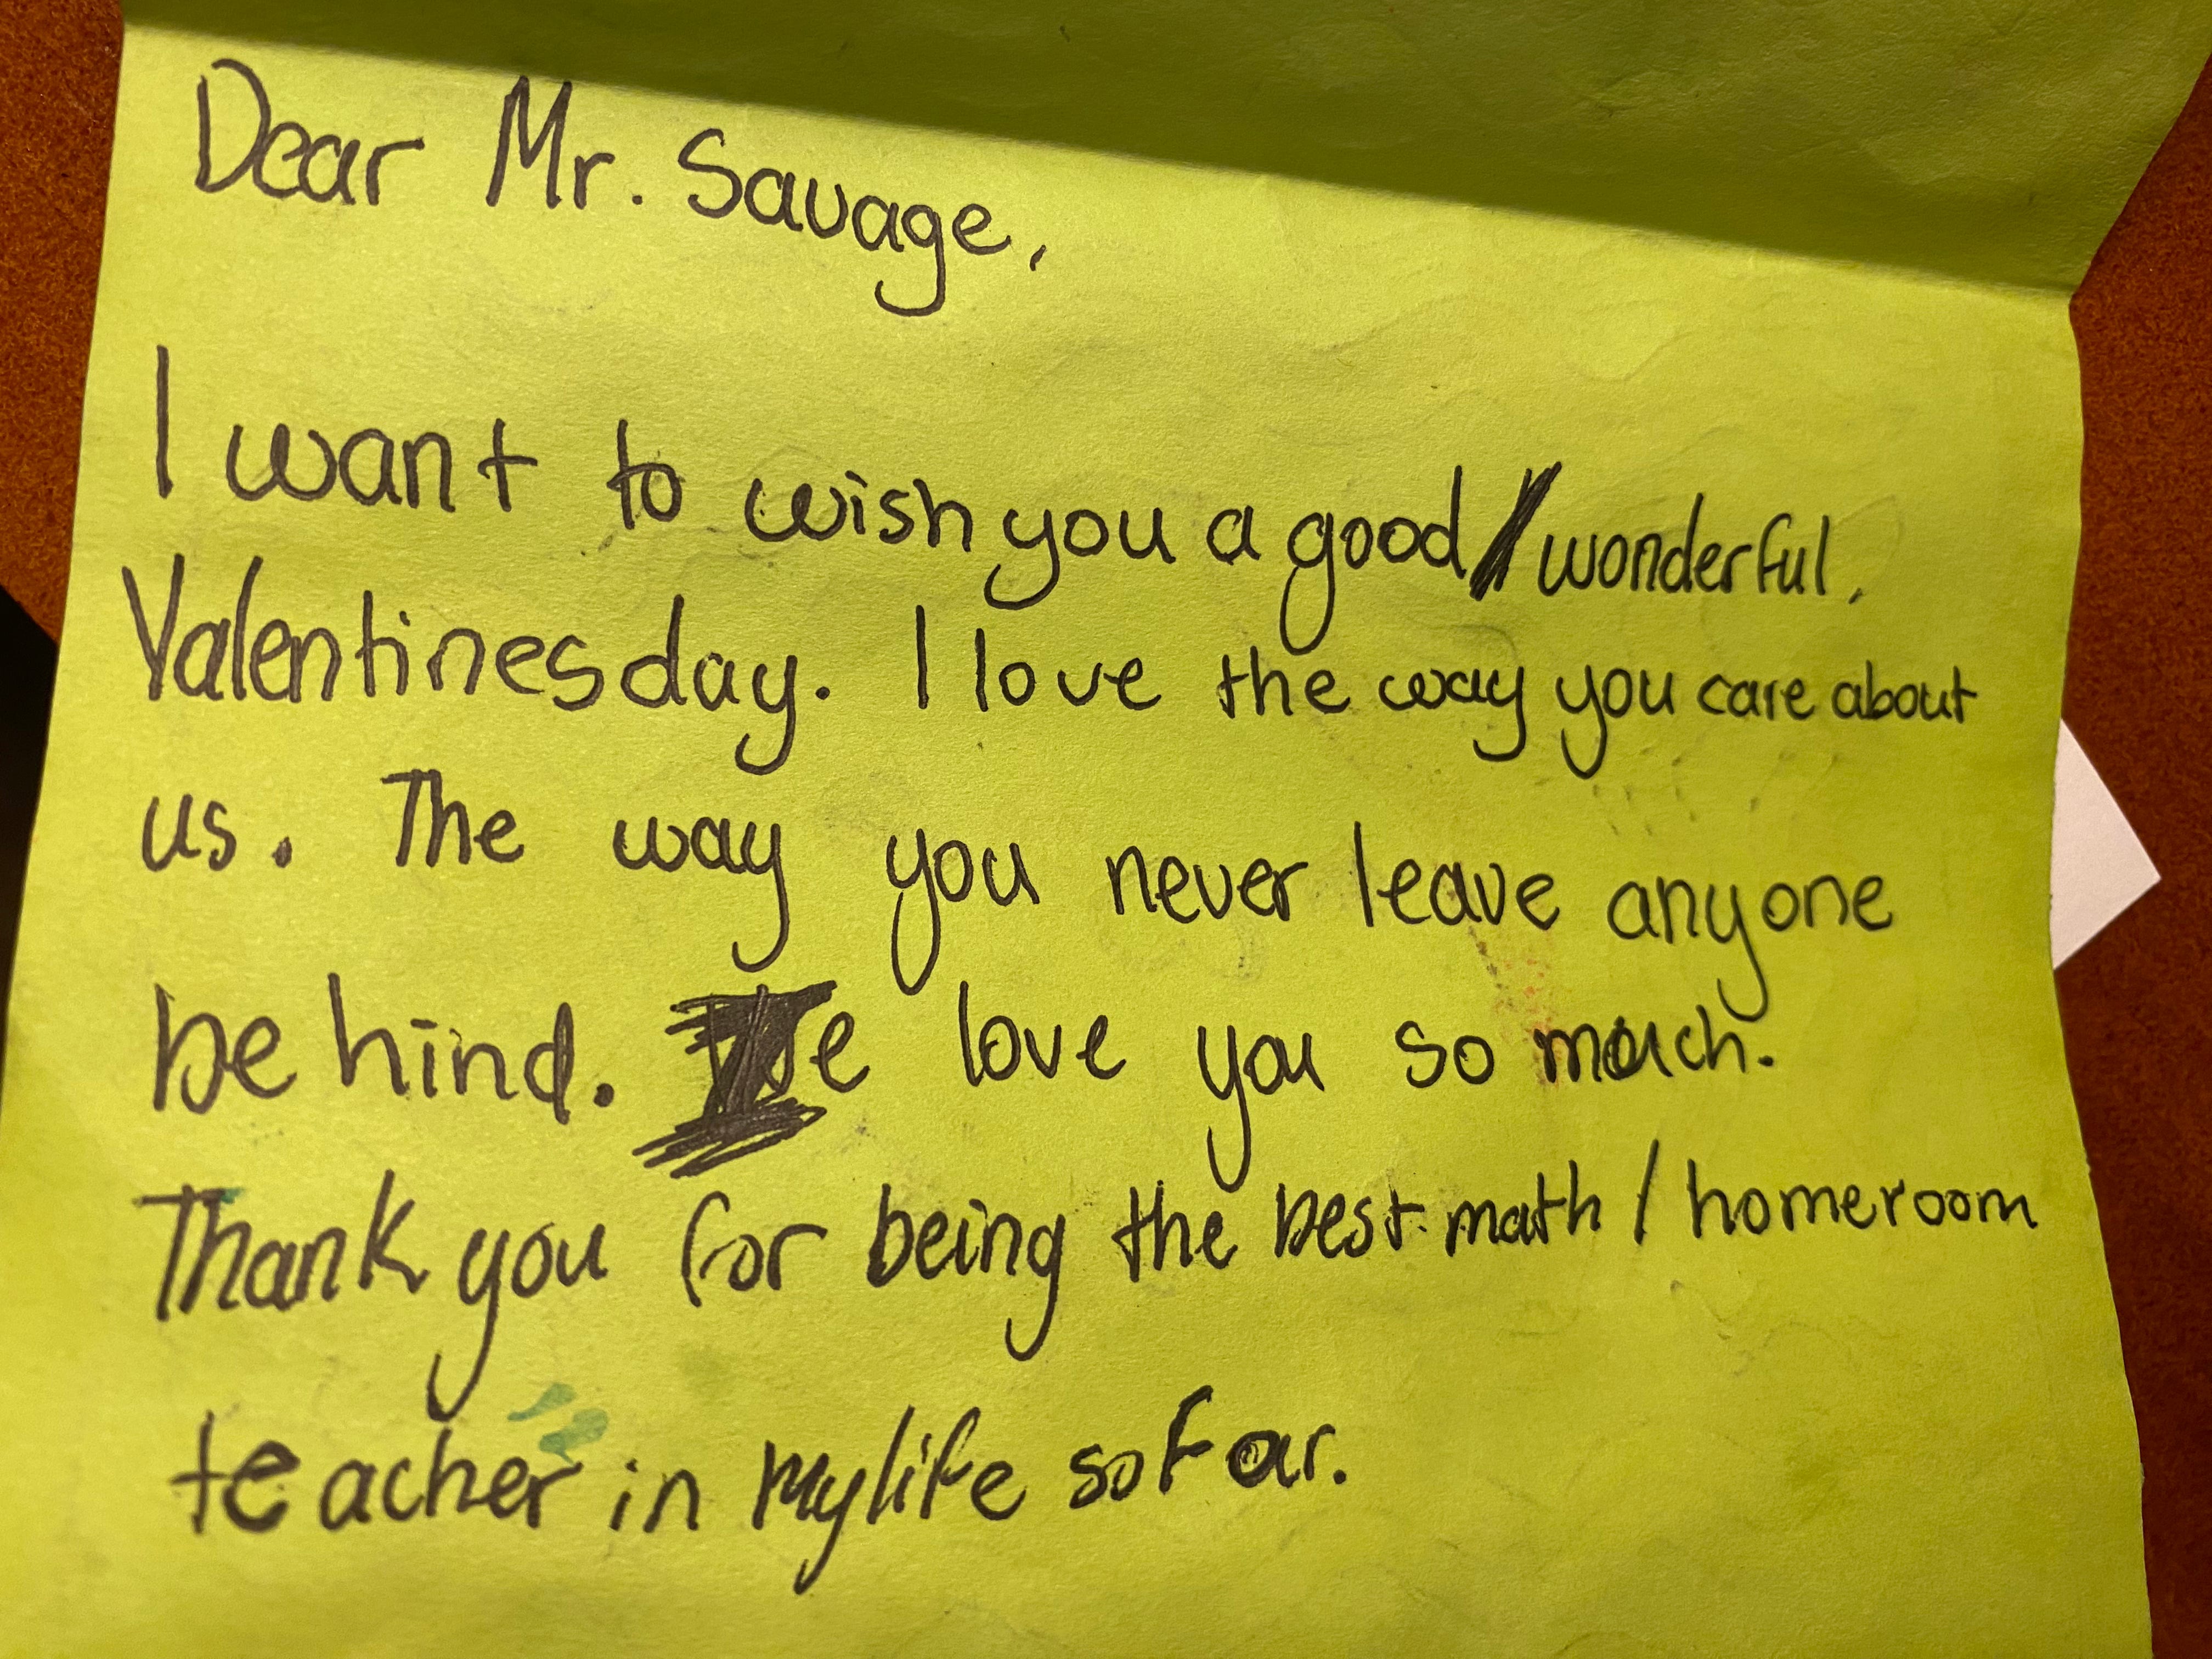 Dear Mr. Savage,
I want to wish you a good/wonderful.
Valentinesday. I love the way you care about
us. The way you never leave anyone
behind. We love you so much.
Thank you for being the best math / homeroom
teacher in my life so far.